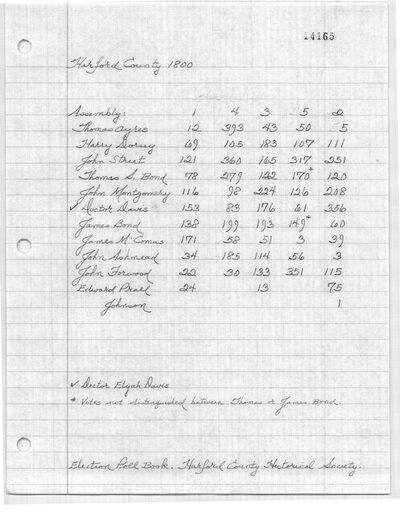 14165
Harford County 1800
Assembly: 1 4 3 5 2
Thomas Ayres 12 393 43 50 5
Harry Dorsey 69 105 183 107 111
John Street 121 360 165 317 251
Thomas S. Bond 78 279 122 170* 120
John Montgomery 116 98 224 126 208
✓ Doctor Davis 153 83 176 61 356
James Bond 138 199 193 149* 60
James McComas 171 58 51 3 39
John Ashmead 34 185 114 56 3
John Forwood 22 30 133 351 115
Edward Prall 24 13 75
Johnson 1
✓ Doctor Elijah Davis
* Votes not distinguished between Thomas or James Bond.
Election Poll Book. Harford County Historical Society.